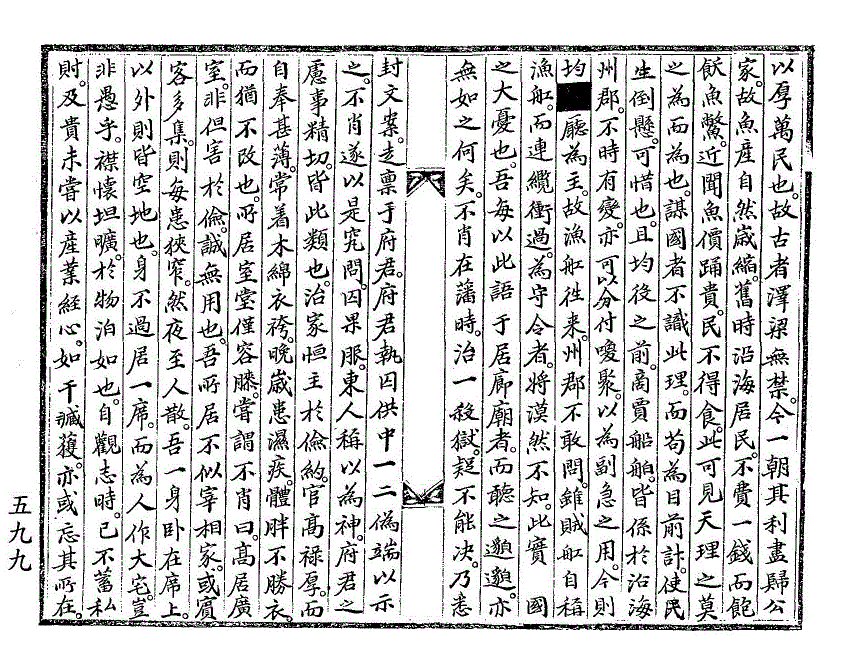 以厚萬民也。故古者澤梁無禁。今一朝其利盡歸公
家。故魚產自然歲縮。舊時沿海居民。不費一錢而飽
飫魚鱉。近聞魚價踊貴。民不得食。此可見天理之莫
之為而為也。謀國者不識此理。而苟為目前計。使民
生倒懸。可惜也。且均役之前。商賈船舶。皆係於沿海
州郡。不時有變。亦可以分付嘍聚。以為副急之用。今則
均■廳為主。故漁舡徃來。州郡不敢問。雖賊舡自稱
漁舡。而連纜衝過。為守令者。將漠然不知。此實 國
之大憂也。吾每以此語于居廊廟者。而聽之邈邈。亦
無如之何矣。不肖在藩時。治一殺獄。疑不能决。乃悉
封文案。走禀于府君。府君執囚供中一二僞端以示
之。不肖遂以是究問。囚果服。東人稱以為神。府君之
慮事精切。皆此類也。治家恒主於儉約。官高祿厚。而
自奉甚薄。常着木綿衣袴。晚歲患濕疾。體胖不勝衣。
而猶不改也。所居室堂僅容膝。嘗謂不肖曰。高居廣
室。非但害於儉。誠無用也。吾所居不似宰相家。或賓
客多集。則每患狹窄。然夜至人散。吾一身臥在席上。
以外則皆空地也。身不過居一席。而為人作大宅。豈
非愚乎。襟懷坦曠。於物泊如也。自觀志時。已不蓄私
財。及貴未嘗以產業經心。如干臧獲。亦或忘其所在。
五九九